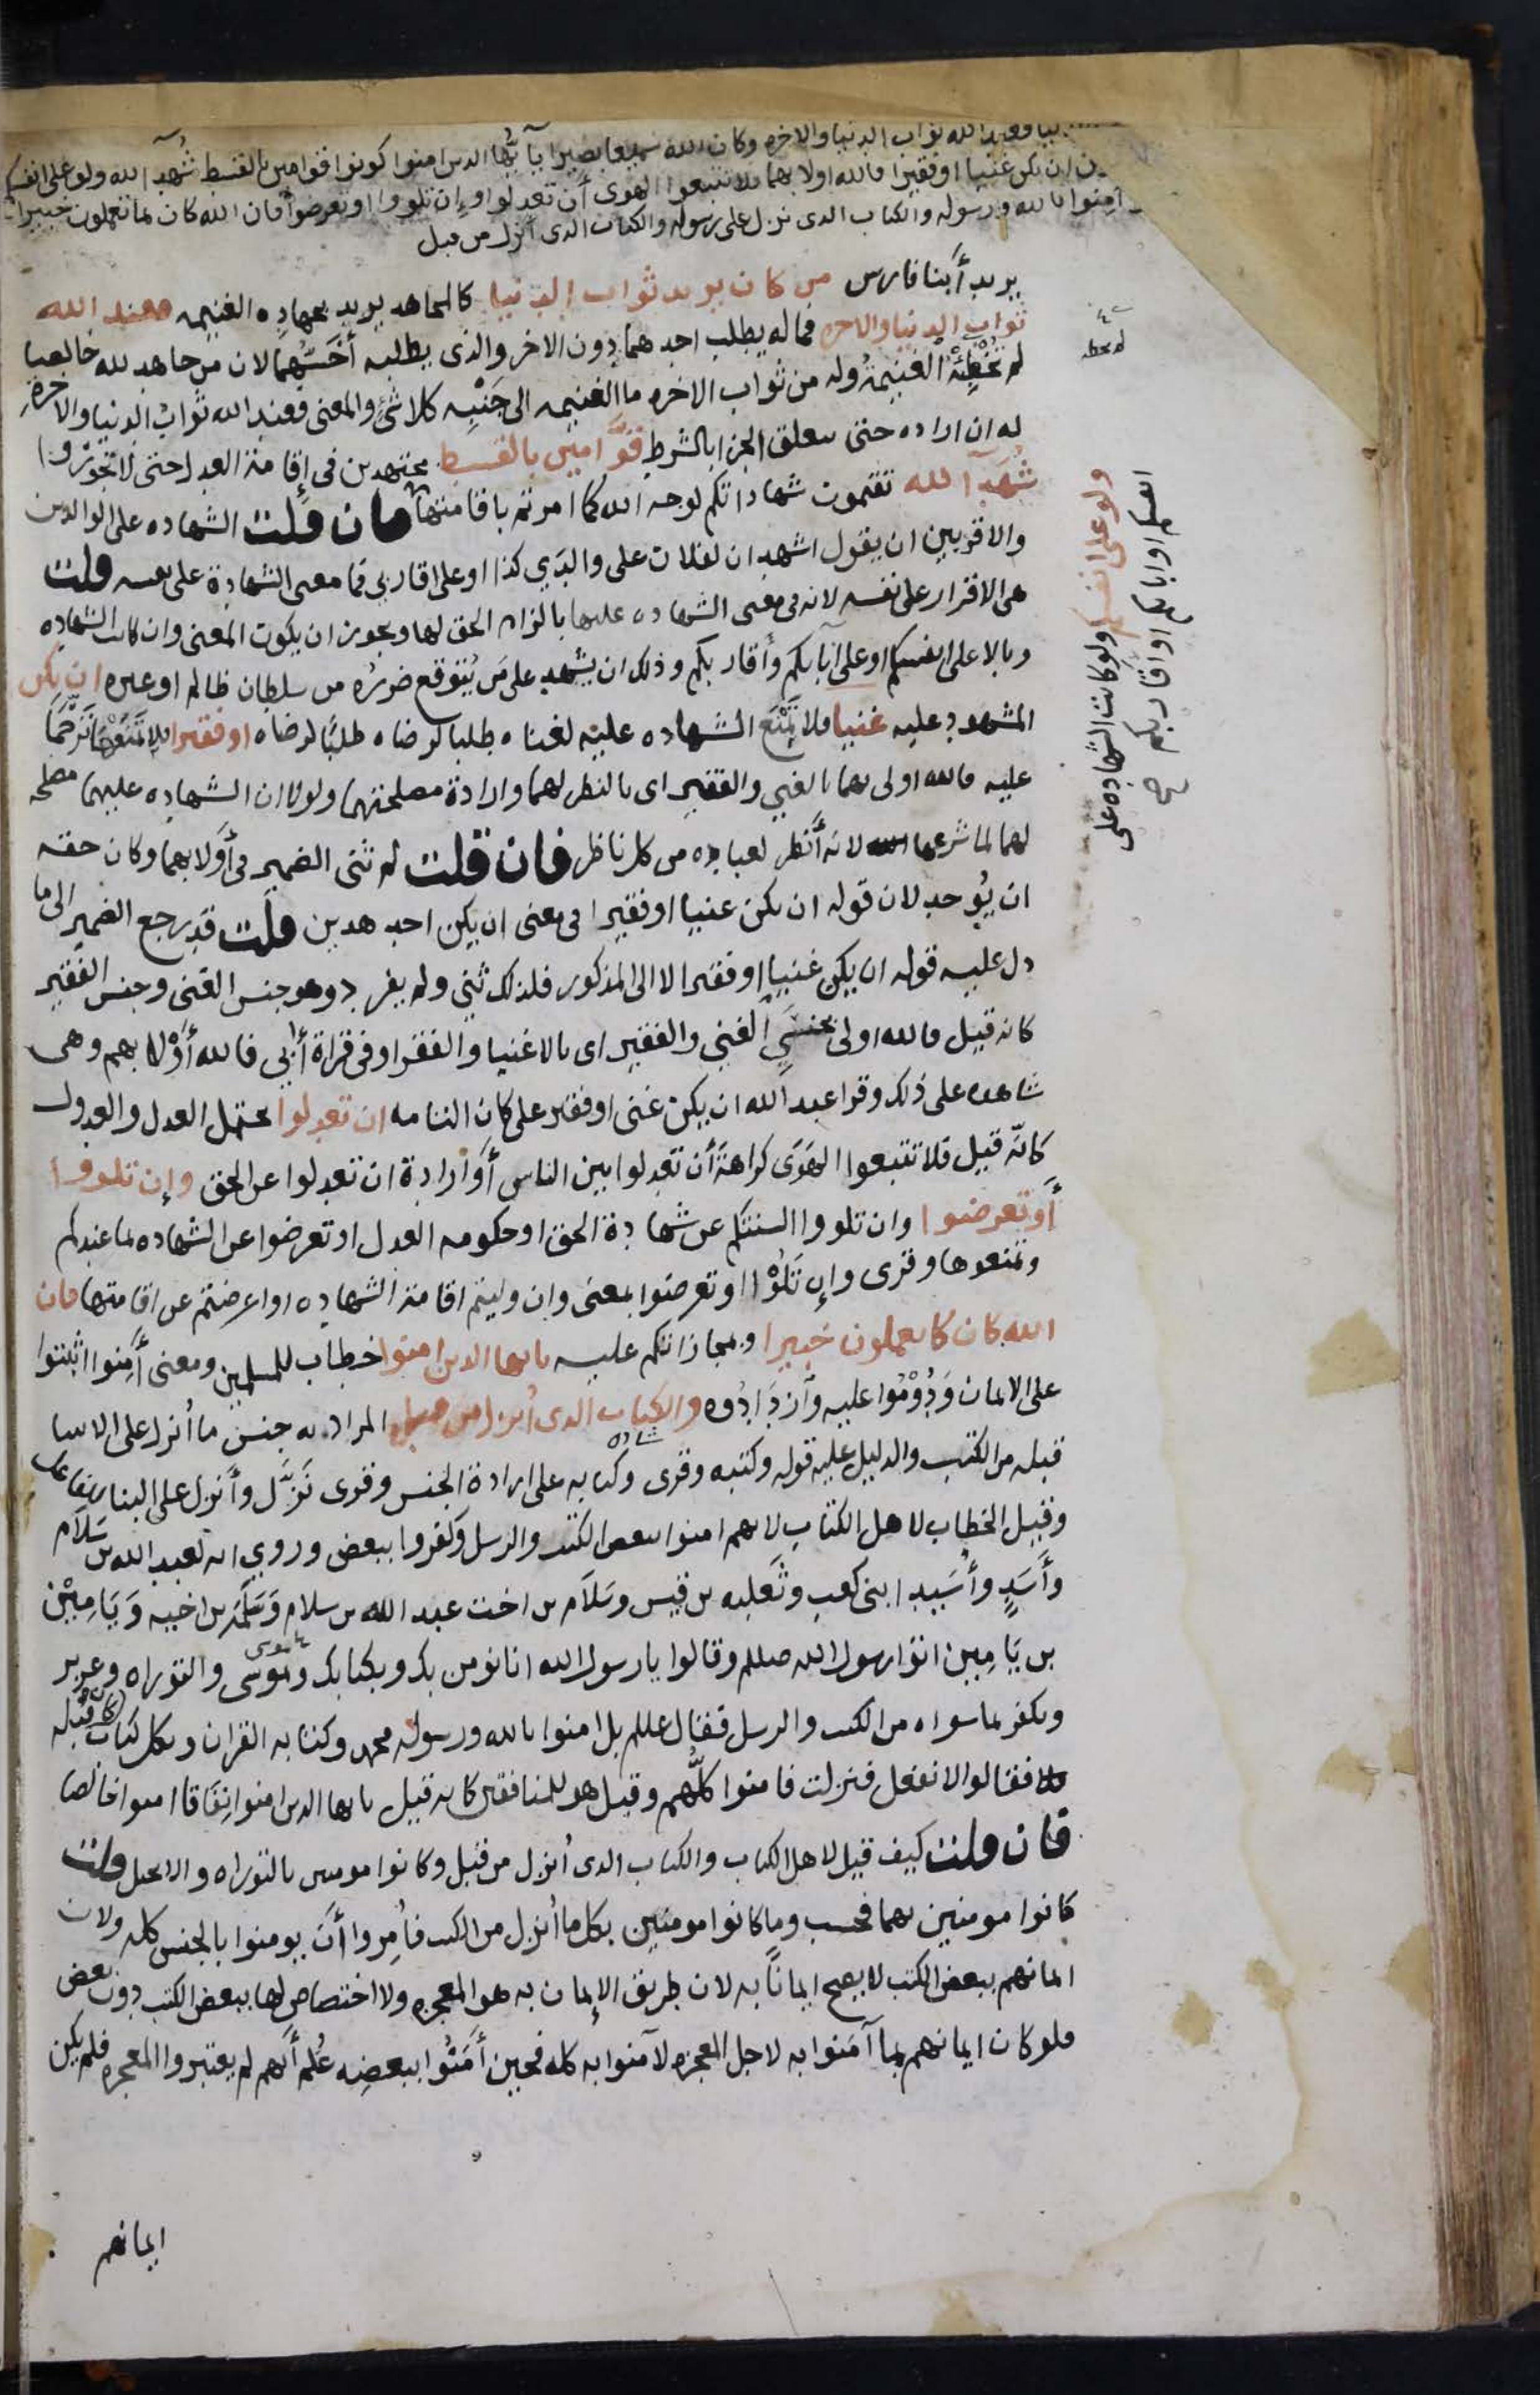 فعند الله ثواب الدنيا والاخره وكان الله سميعا بصيرا يا يُّها الدىن امنوا كونوا قوامىن بالقسط شُهدآ لله ولو على انفسكم
ان يكن غنيا او فقيرا فالله اولا بهما فلا تتبعوا الهوى أن تعدلوا وإن تلووا او تعرضوا فان الله كان بما تعملون خبيرا
آمِنوا بالله ورسوله والكتاب الدى نزل على رسوله والكتاب الدى أنزل من قبل
يريد أبنا فارس من كان يريد ثواب الدنيا كالمجاهد يريد بجهاده الغنيمه فعند الله
ثواب الدنيا والاخره فما له يطلب احدهما دون الاخر والذى يطلبه أخسّهما لان من جاهد لله خالصا
لم تُخْطِئْهُ الغنيمةُ وله من ثواب الاخره ما الغنيمه الى جَنْبِه كلا شئ والمعنى فعند الله ثوابُ الدنيا والاخرةِ
له ان اراده حتى يتعلق الجزا بالشرط قوَّامين بالقسط مجتهدين فى إقامة العدل حتى لا تجوروا
شُهدآ لله تقيمون شهاداتكم لوجه الله كما امرتم باقامتها فان قلت الشهاده على الوالدىن
والاقربين ان يقول اشهد ان لفلان على والدَي كذا او على اقاربي فما معنى الشهادة على نفسه قلت
هى الاقرار على نفسه لانه فى معنى الشهاده عليها بالزام الحق لها ويجوز ان يكون المعنى وان كانت الشهاده
وبالا على انفسكم او على آبآيكم وأقاربكم وذلك ان يشهد على مَن يُتوقع ضررُه من سلطان ظالم او غيره ان يكن
المشهود عليه غنيا فلا تمْنَع الشهاده عليه لغناه طلبا لرضاه طلبًا لرضاه او فقيرا فلا تَمْنَعْها تَرَحُّمًا
عليه فالله اولى بهما بالغني والفقير اى بالنظر لهما وارادة مصلحتهما ولولا ان الشهاده عليهما مصلحه
لهما لما شرعها لانه أنظر لعباده من كل ناظر فان قلت لم ثنى الضمير فى أولا بهما وكان حقه
ان يُوحد لان قوله ان يكن غنيا او فقيرا فى معنى ان يكن احد هدين قلت قد رجع الضمير الى ما
دل عليه قوله ان يكن غنيا او فقيرا لا الى المذكور فلذلك ثني ولم يفرد وهو جنس الغنى وجنس الفقير
كانه قيل فالله اولى بجنسَي الغني والفقير اى بالاغنيا والفقرا وفى قراة أُبي فالله أوْلا بهم وهى
شاهده على ذلك وقرا عبد الله ان يكن غنى او فقير على كان التامه ان تعدلوا يحتمل العدل والعدول
كانّه قيل فلا تتبعوا الهَوَى كراهةَ أن تعدلوا بين الناس أوْ ارادة ان تعدلوا عن الحق وإن تلووا
أو تعرضوا وان تلووا السنتكم عن شهادة الحق او حكومه العدل او تعرضوا عن الشهاده بما عندكم
وتمنعوها وقرى وإن تَلُوْا او تعرضوا بمعنى وان وليتم اقامة الشهاده او اعرضتم عن اقامتها فان
الله كان بما تعملون خبيرا وبمجازاتكم عليه يا يها الدىن امنوا خطاب للمسلمين ومعنى أَمِنوا اثبتوا
على الايمان وَدُوْمُوا عليه وأزدادُوه والكتاب الدى أنزل من قبل المراد به جنس ما أنزل على الانبيا
قبله من الكتب والدليل عليه قوله وكتبه وقرى وكتابه على ارادة الجنس وقرى نَزَّل وأنزل على البنا للفاعل
وقيل الخطاب لاهل الكتاب لانهم امنوا ببعض الكتب والرسل وكفروا ببعض وروي انه لعبد الله بن سَلام
وأَسَدٍ وأُسَيدٍ ابنى كعب وثَعلبه بن قيس وسَلاَم بن اخت عبد الله بن سلام وَسَلَمَة بن اخيه وَيَامِيْن
بن يَامِين اتوا رسول الله صللم وقالوا يا رسول الله انا نومن بك وبكتابك وموسى والتوراه وعزير
ونكفر بما سواه من الكتب والرسل فقال عللم بل امنوا بالله ورسوله محمد وكتابه القران وبكل كتاب كان قبله
فقالوا لا نفعل فنزلت فامنوا كلُّهم وقيل هو للمنافقين كانه قيل يا يها الدىن امنوا نِفَاقا امنوا اخلاصا
فان قلت كيف قيل لاهل الكتاب والكتاب الدى أنزل من قبل وكانوا مومنين بالتوراه والانجيل قلت
كانوا مومنين بهما فحسب وما كانوا مومنين بكل ما أنزل من الكتب فأُمِروا أنْ يومنوا بالجنس كله ولان
ايمانهم ببعض الكتب لا يصح ايمانًا به لان طريق الإيمان به هو المعجزه ولا اختصاص لها ببعض الكتب دون بعض
فلو كان ايمانهم بما آمَنوا به لاجل المعجزه لآمنوا به كله فحين أَمَنُوا ببعضِه عُلم أنهم لم يعتبروا المعجزه فلم يكن
ايمانهم
ولو على انفسكم ولو كانت الشهاده على
انفسكم او ابايكم او اقاربكم صح